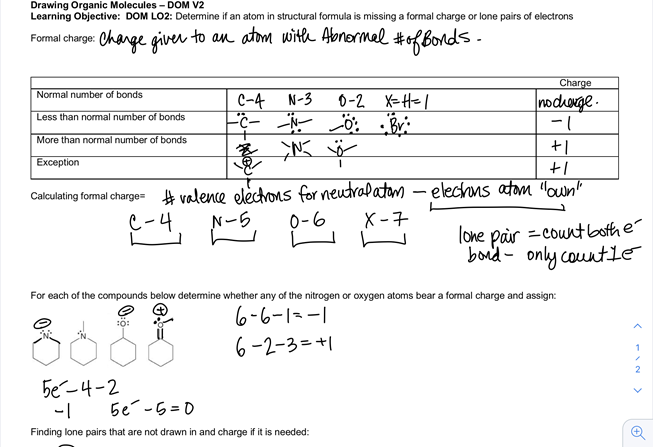 Drawing Organic Molecules – DOM V2
Learning Objective: DOM LO2: Determine if an atom in structural formula is missing a formal charge or lone pairs of electrons
Formal charge: Charge given to an atom with Abnormal # of Bonds.
Charge
Normal number of bonds C-4 N-3 O-2 X=H=1 no charge.
Less than normal number of bonds –C– –N– –O: :Br: -1
More than normal number of bonds N O +1
Exception C +1
Calculating formal charge= # valence electrons for neutral atom – electrons atom "own"
C-4 N-5 O-6 X-7
lone pair = count both e⁻
bond – only count 1e⁻
For each of the compounds below determine whether any of the nitrogen or oxygen atoms bear a formal charge and assign:
N N :O: O
6-6-1=-1
6-2-3=+1
5e⁻-4-2
-1 5e⁻-5=0
Finding lone pairs that are not drawn in and charge if it is needed:
1
/
2